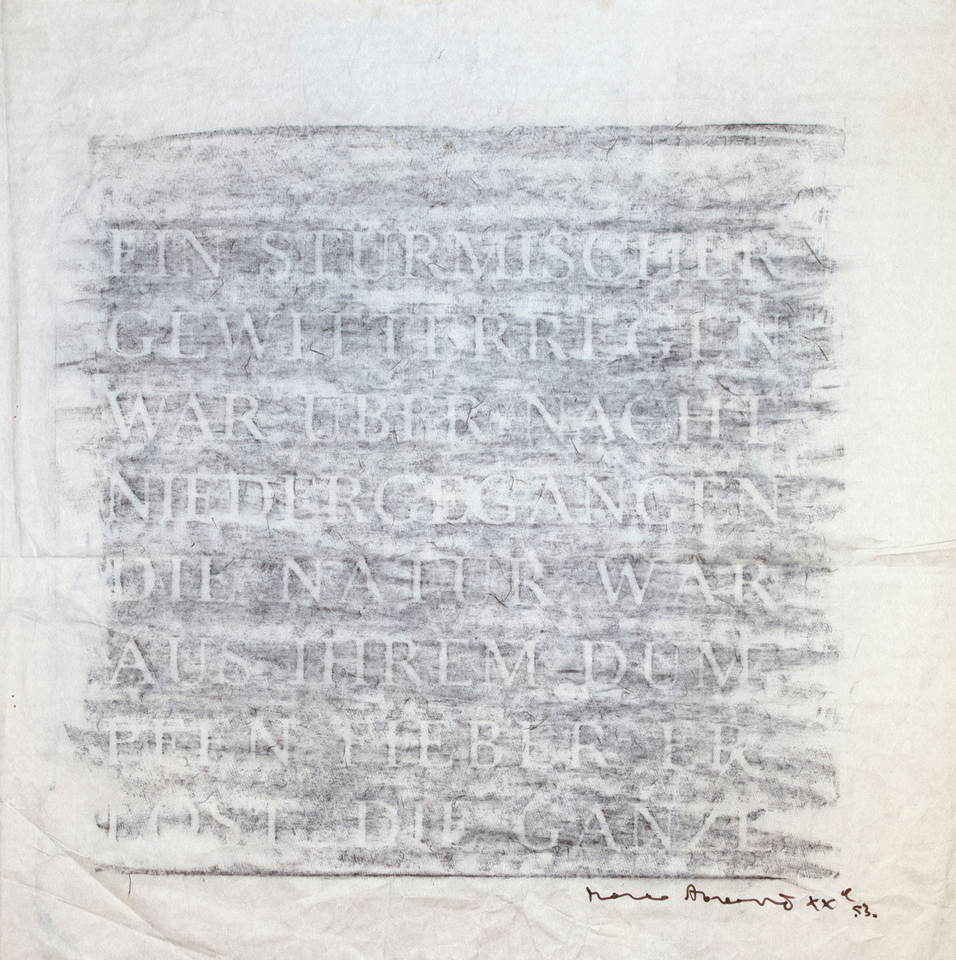 EIN STÜRMISCHER
GEWITTERREGEN
WAR ÜBER NACHT
NIEDERGEGANGEN
DIE NATUR WAR
AUS IHREM DUM
PFEN FIEBER ER
LÖST DIE GANZE
XX 53.